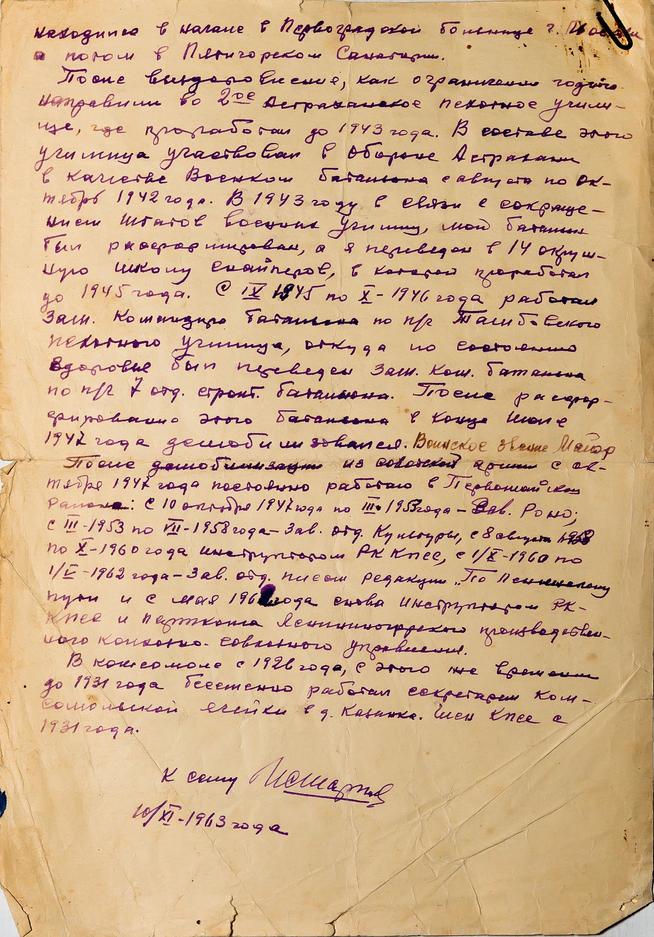 находился в начале в Первоградской больнице г.
а потом в Пятигорском Санатории.
После выздоровление, как ограничено годного
направили во 2ое Астраханское пехотное учили-
ще, где проработал до 1943 года. В составе этого
училища участвовал в обороне Астрахани
в качестве Военком батальона с августа по ок-
тябрь 1942 года. В 1943 году в связи с сокраще-
нием штатов военных училищ, мой батальон
был расформирован, а я переведен в 14 окруж-
ную школу снайперов, в которой проработал
до 1945 года. С IX 1945 по X-1946 года работал
Зам. Командира батальона по п/ч Тамбовского
пехотного училища, откуда по состоянию
здоровье был переведен Зам. Ком. батальона
по п/ч 7 отд. строит. батальона. После расфор-
мирования этого батальона в конце июле
1947 года демобилизовался. Воинское звание Майор
После демобилизации из советской армии с ок-
тября 1947 года постоянно работаю в Первомайском
Районе: С 10 октября 1947 года по III 1953 года - Зав. Роно;
с III-1953 по VII-1958 года - Зав. отд. Культуры, с 8 августа
по X-1960 года инструктором РК Кпсс, с 1/X-1960 по
1/V-1962 года - Зав. отд. писем редакции „По Ленинскому
пути и с мая года снова инструктором РК-
Кпсс и парткома Лениногорского производствен-
ного колхозно-совхозного управления.
В комсомоле с 1926 года, с этого же времени
до 1931 года бессменно работал секретарем Ком-
сомольской ячейки в д. Казанка. Член Кпсс с
1931 года.
К сему
10/XI-1963 года